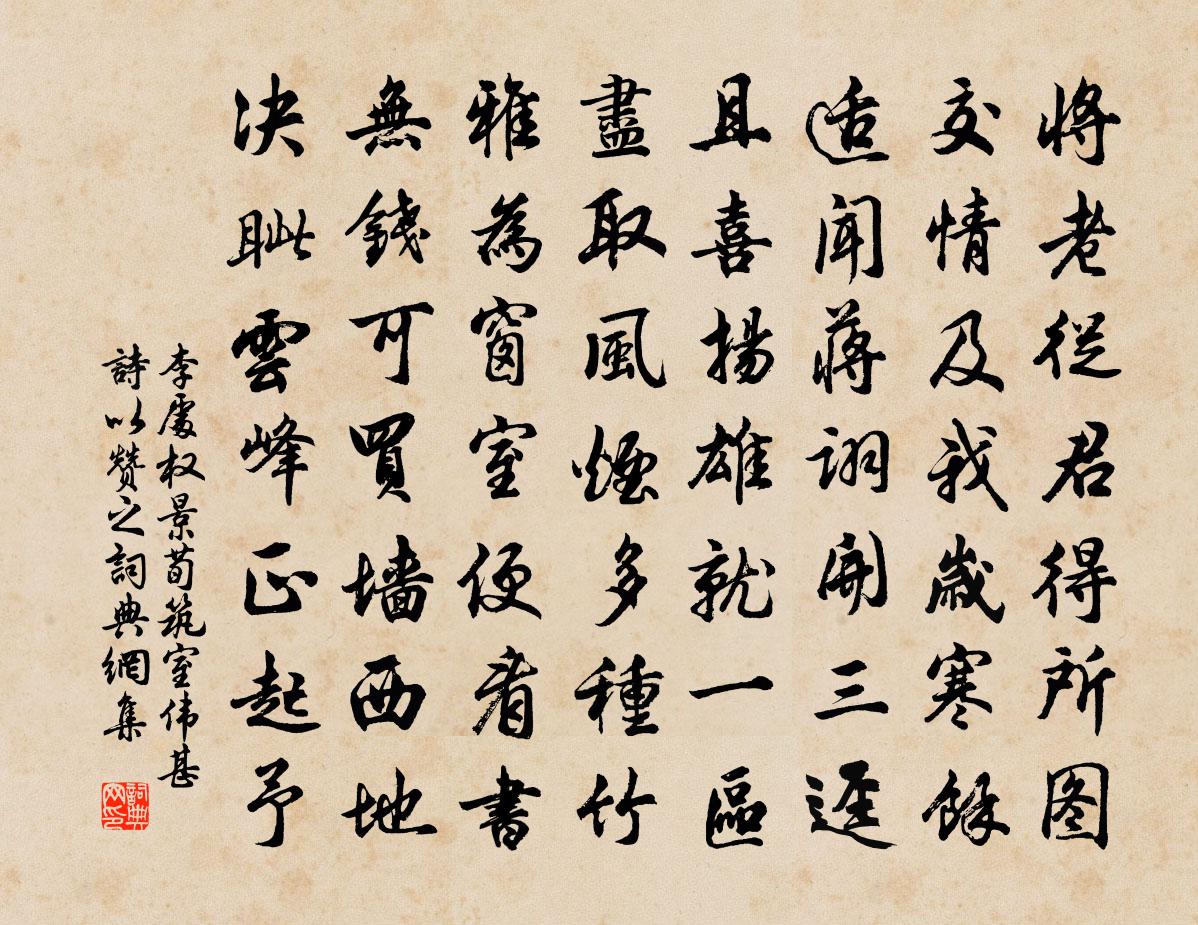 將老從君得所图
交情及我歲寒餘
适聞蔣詡開三逕
且喜揚雄就一區
盡取風煙多種竹
雅為窗室便看書
無錢可買墙西地
决眦雲峰正起予
李處权景荀筑室伟甚
詩以赞之詞典網集
詞典网印